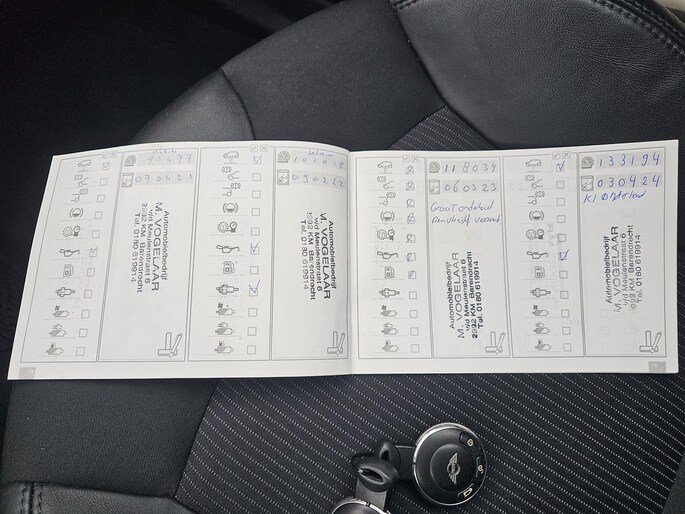 070423
Automobielbedrijf
M. VOGELAAR
v/d Meulenstraat 6
2992 KM Barendrecht
Tel. 0180 619914
Automobielbedrijf
M. VOGELAAR
v/d Meulenstraat 6
2992 KM Barendrecht
Tel. 0180 619914
118034
060323
Groot onderhoud
Automobielbedrijf
M. VOGELAAR
v/d Meulenstraat 6
2992 KM Barendrecht
Tel. 0180 619914
133194
030424
Kl onderhoud
Automobielbedrijf
M. VOGELAAR
v/d Meulenstraat 6
2992 KM Barendrecht
Tel. 0180 619914